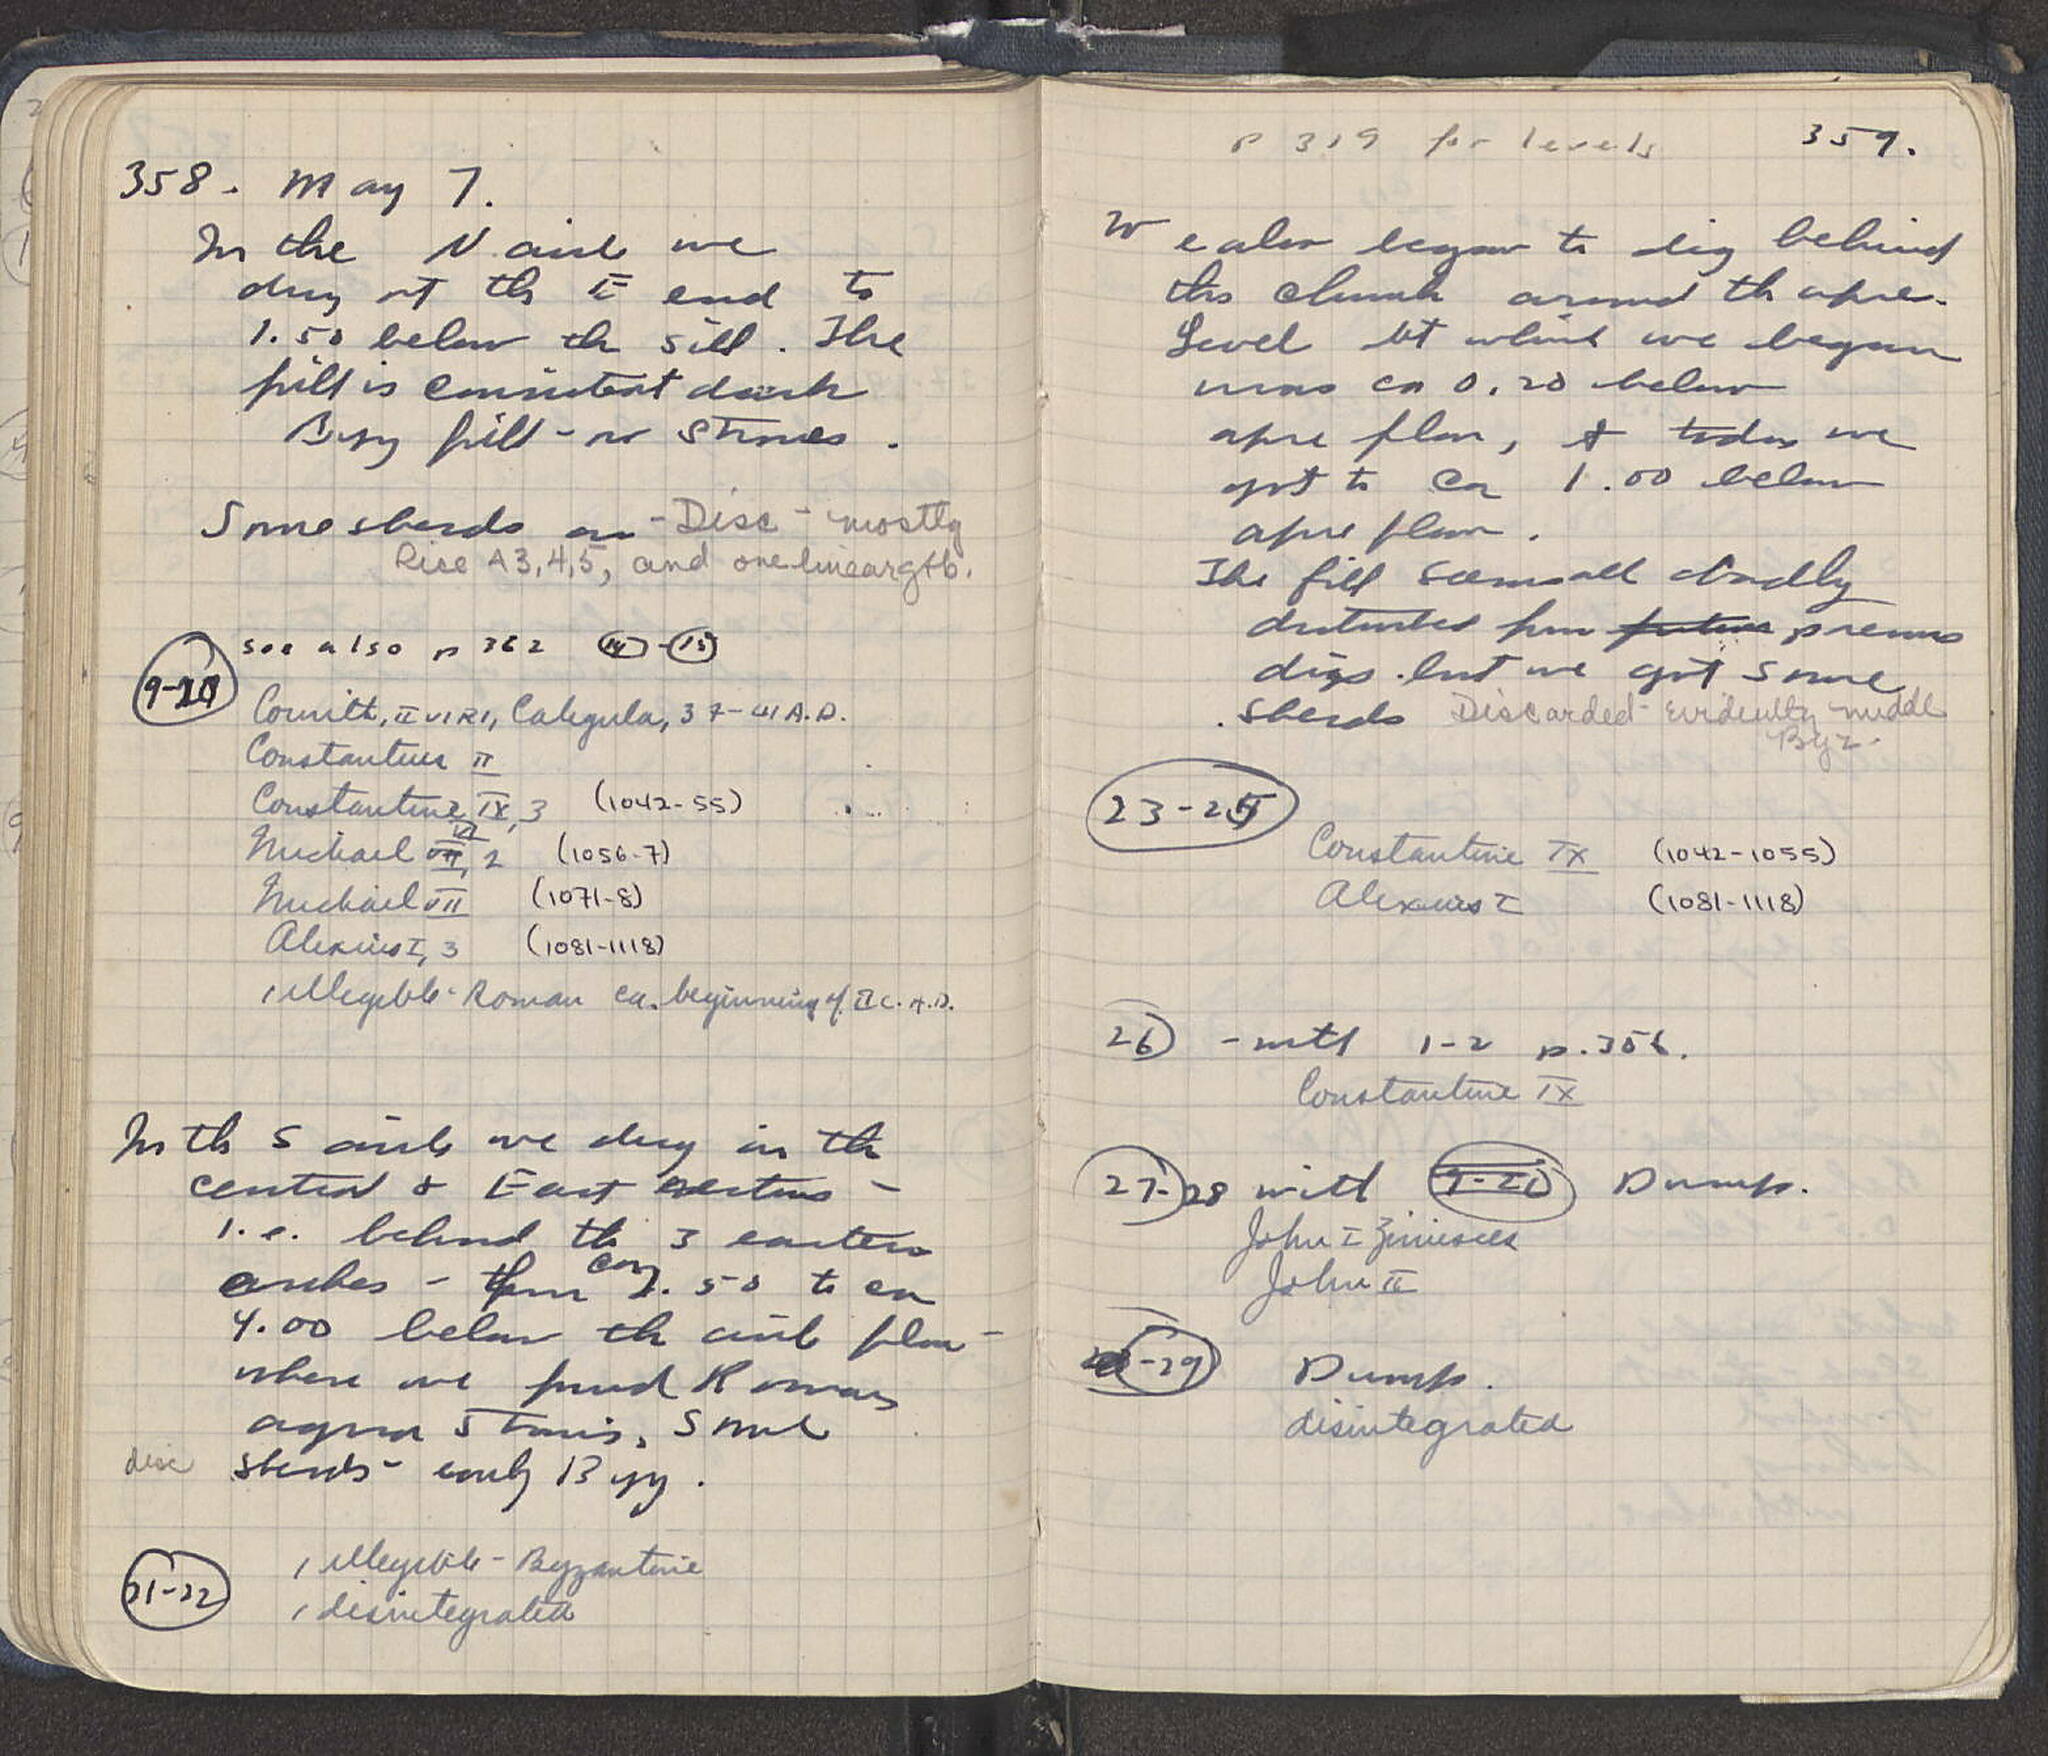 358. May 7.
In the N aisle we
dug at the E end to
1.50 below the sill. The
fill is consistent dark
Byz fill - no stones.
Some sherds on - Disc - mostly
Rice A3,4,5, and one linear gtb.
see also p 362 (14)-(15)
9-20
Corinth, II VIRI, Caligula, 37-41 A.D.
Constantius II
Constantine IX, 3 (1042-55)
Michael VI, 2 (1056-7)
Michael VII (1071-8)
Alexius I, 3 (1081-1118)
1 illegible - Roman ca. beginning of II C. A.D.
In th S aisle we dug in the
central & East sections -
i.e. behind the 3 eastern
arches - from ca 2.50 to ca
4.00 below the aisle floor -
where we found Roman
agora stones. Some
disc sherds - early Byz.
21-22
1 illegible - Byzantine
1 disintegrated
p 319 for levels 359.
We also began to dig behind
this church around th apse.
Level at which we began
was ca 0.20 below
apse floor, & today we
got to ca 1.00 below
apse floor.
The fill seems all badly
disturbed from previous
digs. but we got some
sherds Discarded - Evidently middle
Byz.
23-25
Constantine IX (1042-1055)
Alexius I (1081-1118)
26 - with 1-2 p.356.
Constantine IX
27-28 with 9-20 Dump.
John I Zimisces
John II
-29 Dump.
disintegrated